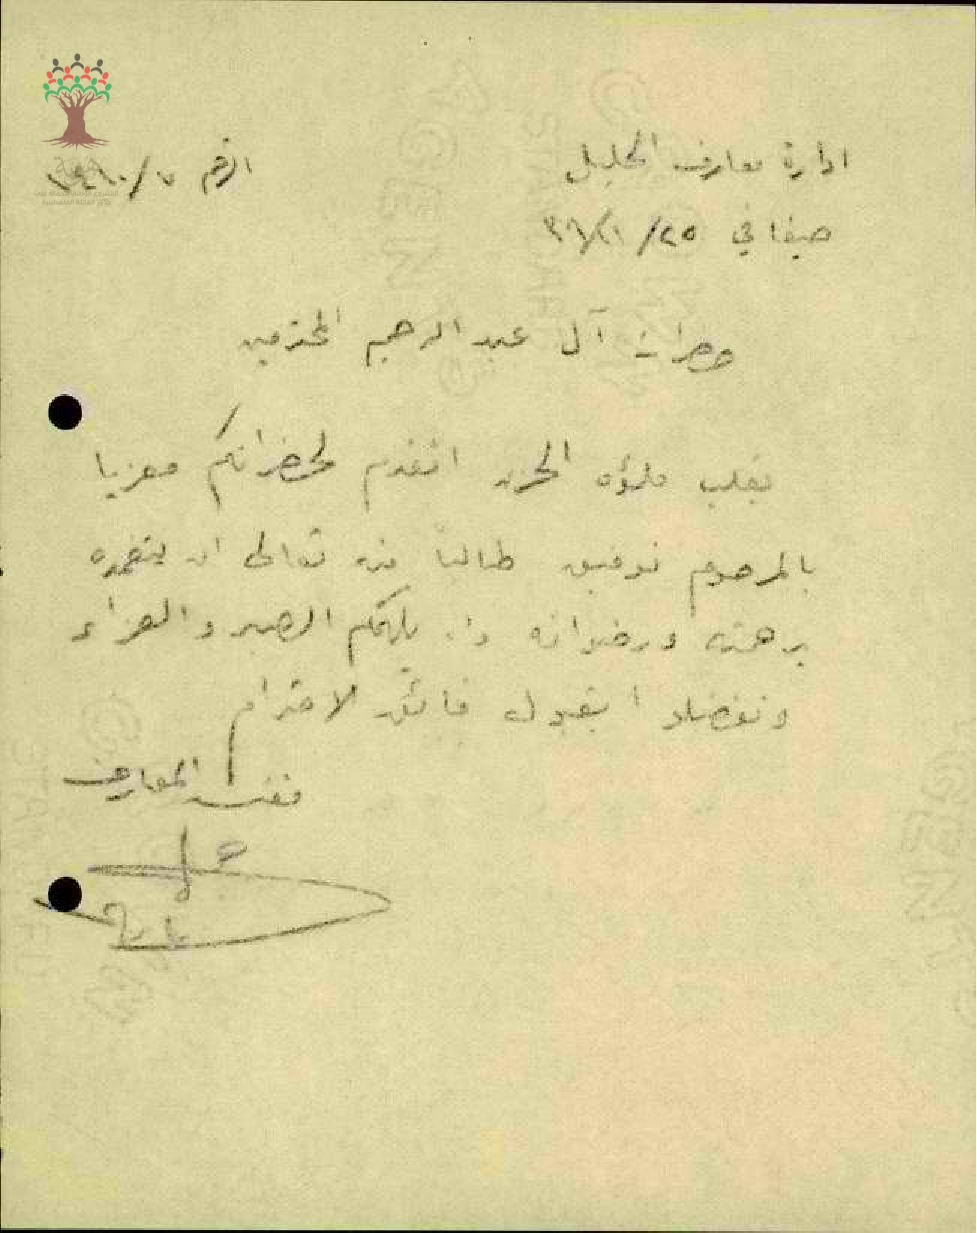 ادارة معارف الجليل
الرقم ٧/
حيفا في ٢٥/١١/٣٦
حضرات آل عبد الرحيم المحترمين
بقلب ملؤه الحزن اتقدم لحضراتكم معزيا
بالمرحوم توفيق طالباً منه تعالى ان يتغمده
برحمته ورضوانه وان يلهمكم الصبر والعزاء
وتفضلوا بقبول فائق الاحترام
مفتش المعارف